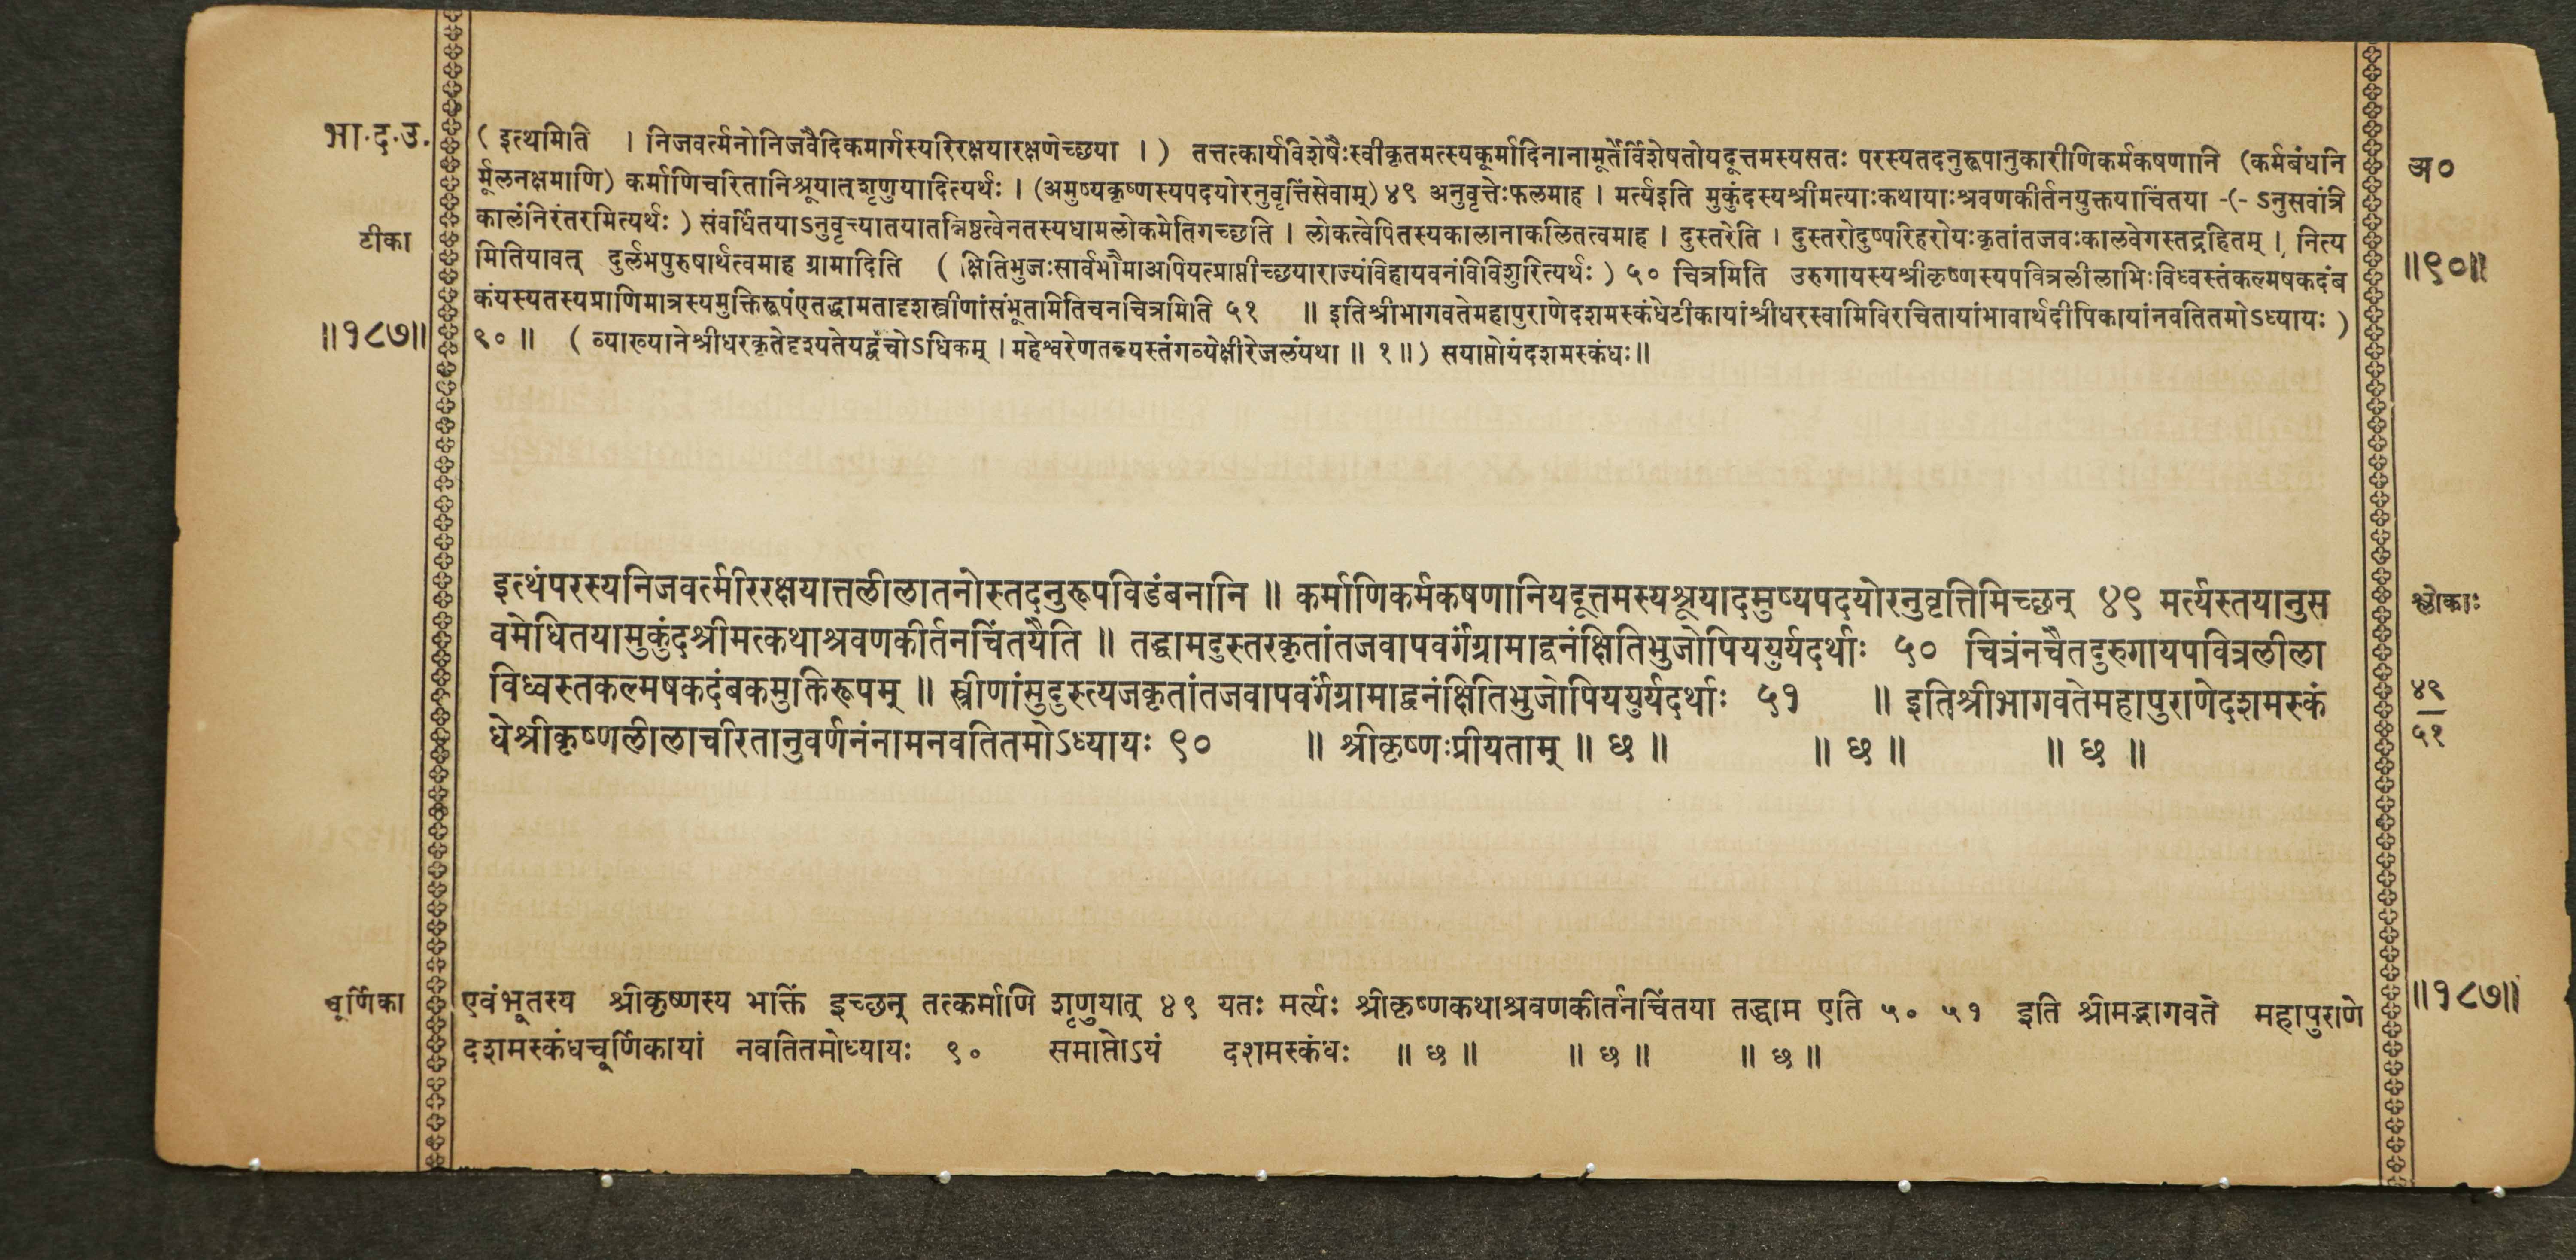 भा॰द॰उ॰
टीका
॥१८७॥
( इत्थमिति । निजवर्त्मनोनिजवैदिकमार्गस्यरिरक्षयारक्षणेच्छया । ) तत्तत्कार्यविशेषैःस्वीकृतमत्स्यकूर्मादिनानामूर्तेर्विशेषतोयदूत्तमस्यसतः परस्यतदनुरूपानुकारीणिकर्मकषणानि (कर्मबंधनि
र्मूलनक्षमाणि) कर्माणिचरितानिश्रूयात्शृणुयादित्यर्थः । (अमुष्यकृष्णस्यपदयोरनुवृत्तिंसेवाम्) ४९ अनुवृत्तेःफलमाह । मर्त्यइति मुकुंदस्यश्रीमत्याःकथायाःश्रवणकीर्तनयुक्तयाचिंतया -(- ऽनुसवांत्रि
कालंनिरंतरमित्यर्थः ) संवर्धितयाऽनुवृत्त्यातयातन्निष्ठत्वेनतस्यधामलोकमेतिगच्छति । लोकत्वेपितस्यकालानाकलितत्वमाह । दुस्तरेति । दुस्तरोदुष्परिहरोयःकृतांतजवःकालवेगस्तद्रहितम् । नित्य
मितियावत् दुर्लभपुरुषार्थत्वमाह ग्रामादिति ( क्षितिभुजःसार्वभौमाअपियत्प्राप्तीच्छयाराज्यंविहायवनांविविशुरित्यर्थः ) ५० चित्रमिति उरुगायस्यश्रीकृष्णस्यपवित्रलीलाभिःविध्वस्तंकल्मषकदंब
कंयस्यतस्यप्राणिमात्रस्यमुक्तिरूपंएतद्धामतादृशस्त्रीणांसंभूतामितिचनचित्रमिति ५१ ॥ इतिश्रीभागवतेमहापुराणेदशमस्कंधेटीकायांश्रीधरस्वामिविरचितायांभावार्थदीपिकायांनवतितमोऽध्यायः )
९० ॥ ( व्याख्यानेश्रीधरकृतेदृश्यतेयद्वंचोऽधिकम् । महेश्वरेणतन्न्यस्तंगव्येक्षीरेजलंयथा ॥ १ ॥ ) सयाप्तोयंदशमस्कंधः ॥
अ०
॥९०॥
इत्थंपरस्यनिजवर्त्मरिरक्षयात्तलीलातनोस्तदनुरूपविडंबनानि ॥ कर्माणिकर्मकषणानियदूत्तमस्यश्रूयादमुष्यपदयोरनुवृत्तिमिच्छन् ४९ मर्त्यस्तयानुस
वमेधितयामुकुंदश्रीमत्कथाश्रवणकीर्तनचिंतयैति ॥ तद्धामदुस्तरकृतांतजवापवर्गंग्रामाद्वनंक्षितिभुजोपिययुर्यदर्थाः ५० चित्रंनचैतदुरुगायपवित्रलीला
विध्वस्तकल्मषकदंबकमुक्तिरूपम् ॥ स्त्रीणांमुदुस्त्यजकृतांतजवापवर्गंग्रामाद्वनंक्षितिभुजोपिययुर्यदर्थाः ५१ ॥ इतिश्रीभागवतेमहापुराणेदशमस्कं
धेश्रीकृष्णलीलाचरितानुवर्णनंनामनवतितमोऽध्यायः ९० ॥ श्रीकृष्णःप्रीयताम् ॥ छ ॥ ॥ छ ॥ ॥ छ ॥
श्लोकाः
४९
५१
चूर्णिका
एवंभूतस्य श्रीकृष्णस्य भक्तिं इच्छन् तत्कर्माणि शृणुयात् ४९ यतः मर्त्यः श्रीकृष्णकथाश्रवणकीर्तनचिंतया तद्धाम एति ५० ५१ इति श्रीमद्भागवते महापुराणे
दशमस्कंधचूर्णिकायां नवतितमोध्यायः ९० समाप्तोऽयं दशमस्कंधः ॥ छ ॥ ॥ छ ॥ ॥ छ ॥
॥१८७॥